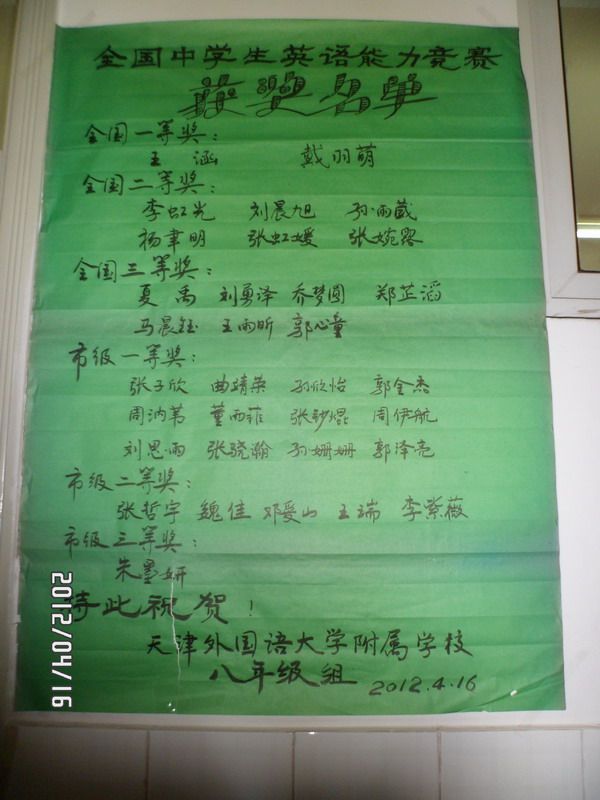 全国中学生英语能力竞赛
获奖名单
全国一等奖:
王涵 戴羽萌
全国二等奖:
李虹光 刘晨旭 孙雨葳
杨聿明 张虹媛 张婉露
全国三等奖:
夏禹 刘勇泽 乔梦圆 郑芷滔
马晨钰 王雨昕 郭心童
市级一等奖:
张子欣 曲靖荣 孙欣怡 郭全杰
周汭苇 董雨菲 张砂焜 周伊航
刘思雨 张骁瀚 孙姗姗 郭泽亮
市级二等奖:
张哲宇 魏佳 邓受山 王瑞 李紫薇
市级三等奖:
朱墨妍
特此祝贺!
天津外国语大学附属学校
八年级组 2012.4.16
2012/04/16